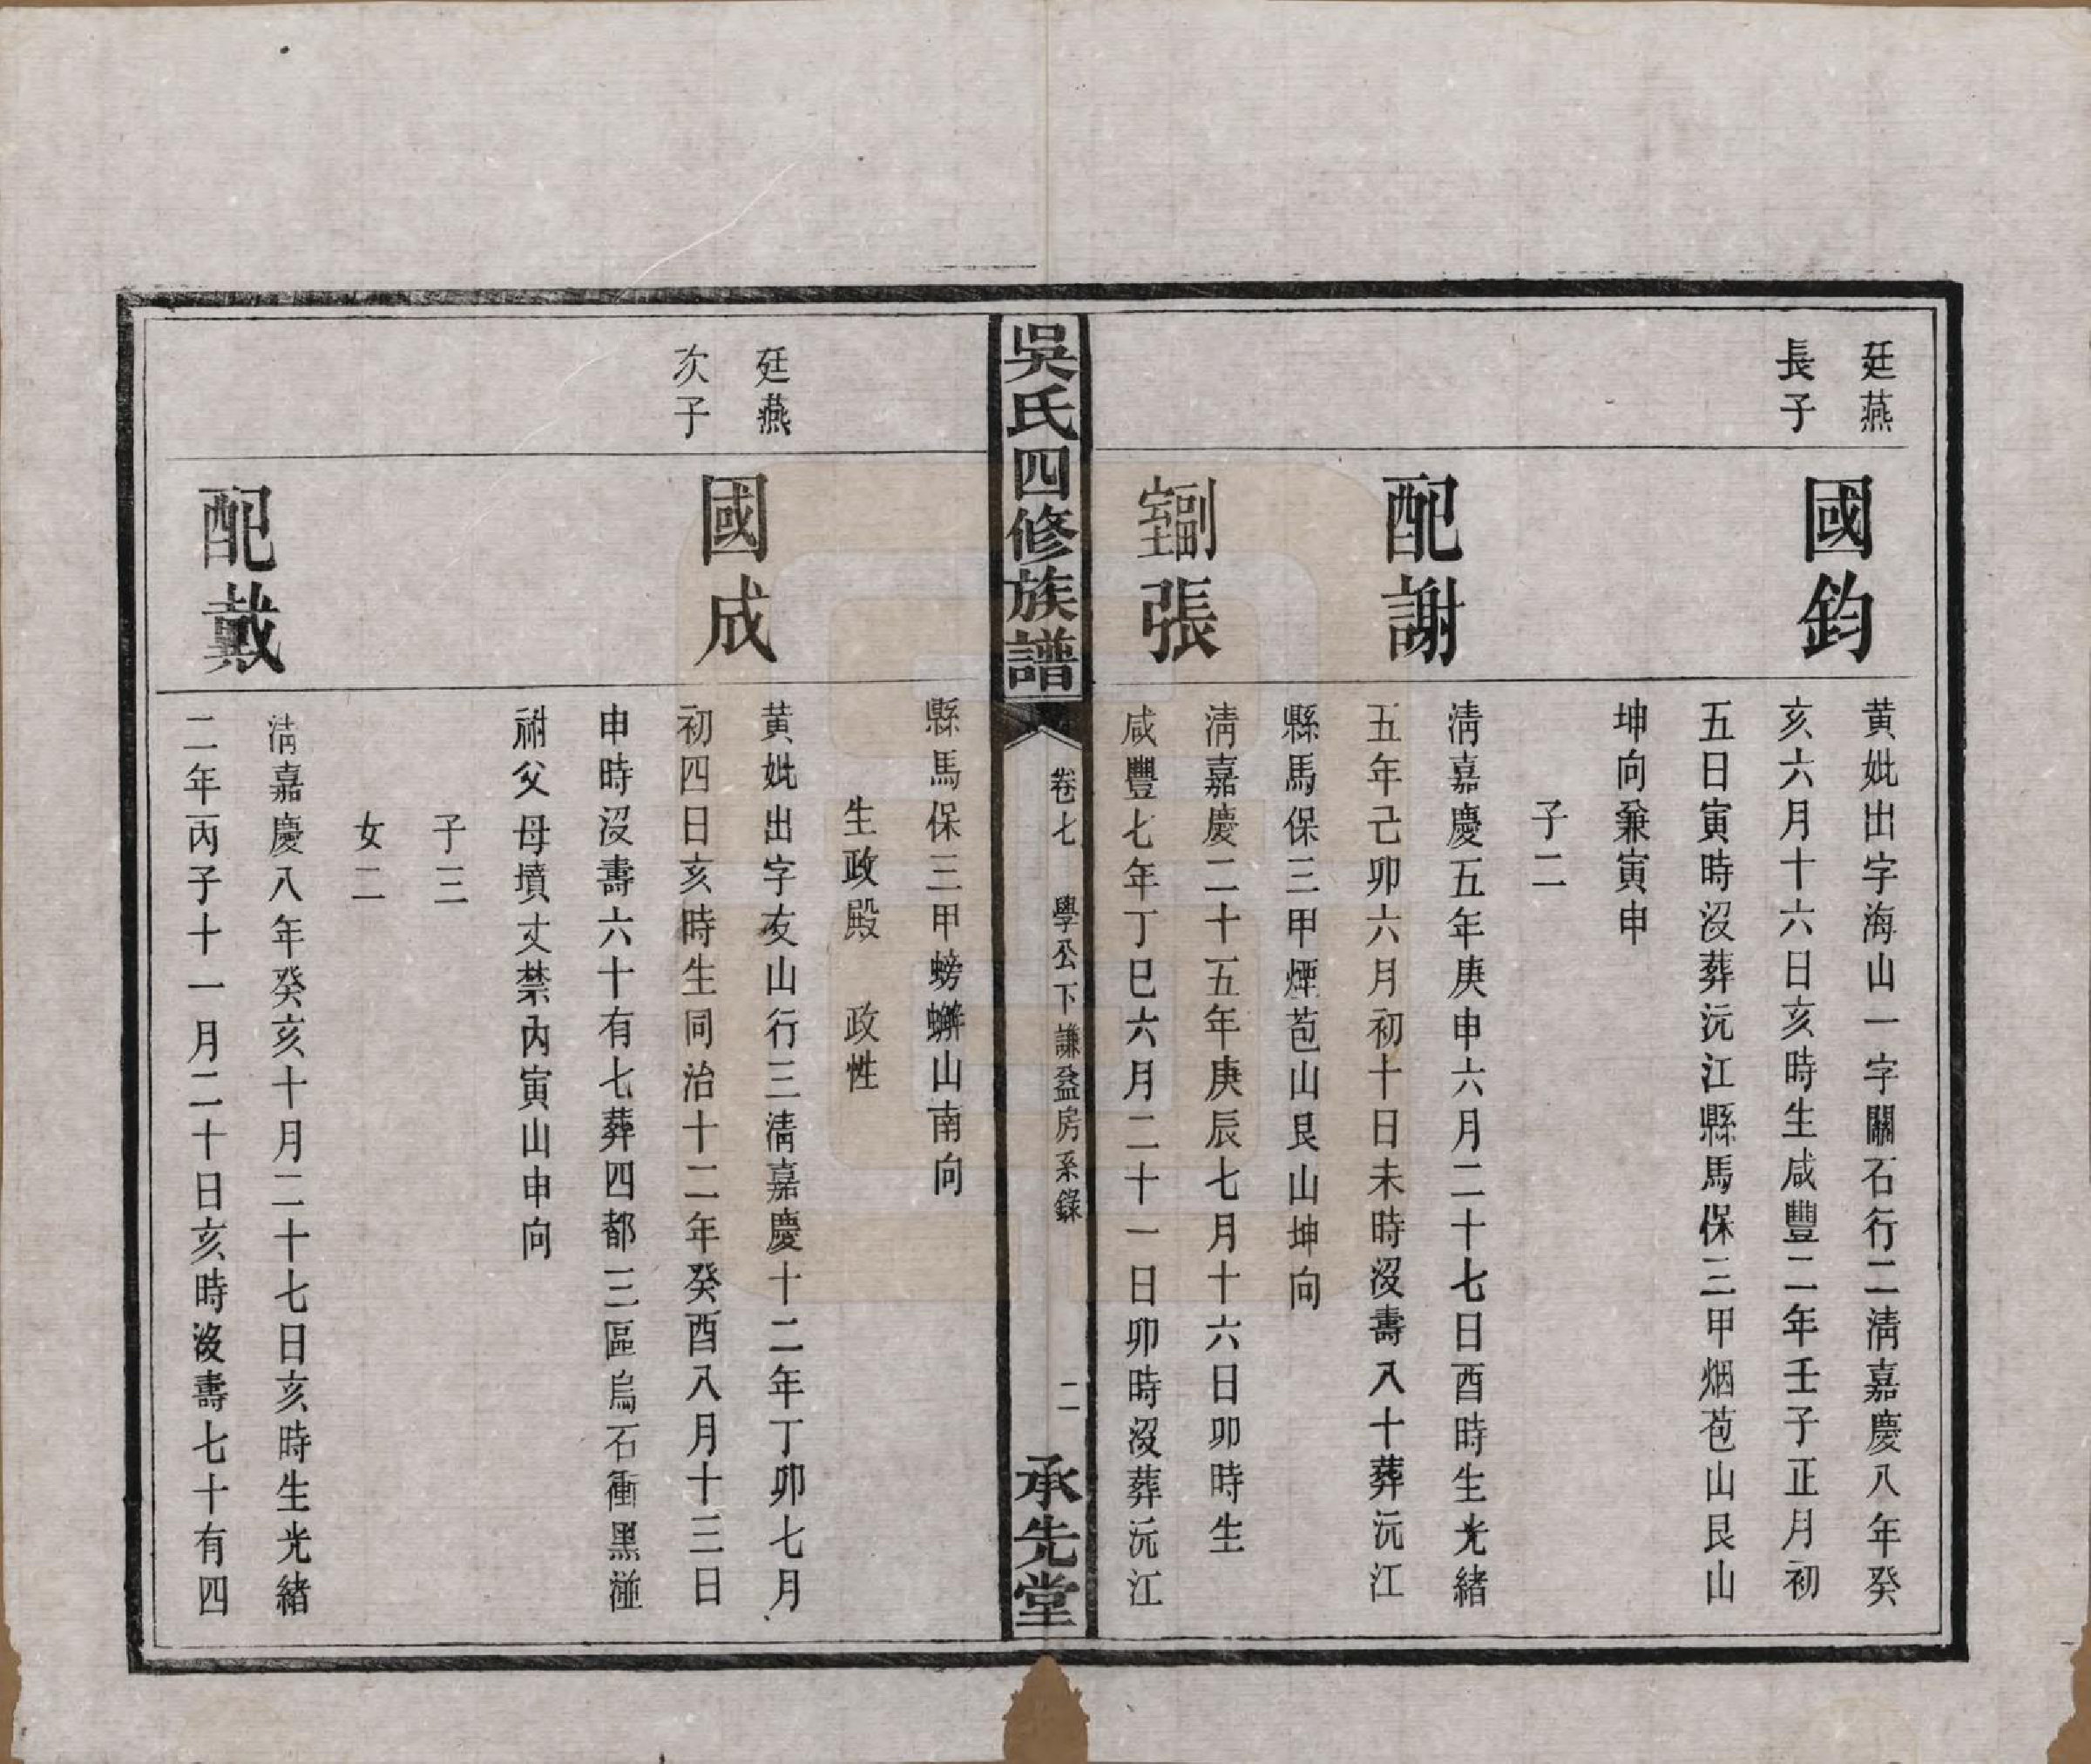 廷燕
長子
國鈞
黄妣出字海山一字關石行二淸嘉慶八年癸
亥六月十六日亥時生咸豐二年壬子正月初
五日寅時沒葬沅江縣馬保三甲烟苞山艮山
坤向兼寅申
子二
配謝
淸嘉慶五年庚申六月二十七日酉時生光緒
五年己卯六月初十日未時沒壽八十葬沅江
縣馬保三甲煙苞山艮山坤向
副室張
淸嘉慶二十五年庚辰七月十六日卯時生
咸豐七年丁巳六月二十一日卯時沒葬沅江
吳氏四修族譜
卷七 學公下謙益房系錄
二
承先堂
縣馬保三甲螃蠏山南向
生政殿 政性
廷燕
次子
國成
黄妣出字友山行三淸嘉慶十二年丁卯七月
初四日亥時生同治十二年癸酉八月十三日
申時沒壽六十有七葬四都三區烏石衝黑𡌶
祔父母墳丈禁內寅山申向
子三
女二
配戴
淸嘉慶八年癸亥十月二十七日亥時生光緒
二年丙子十一月二十日亥時沒壽七十有四